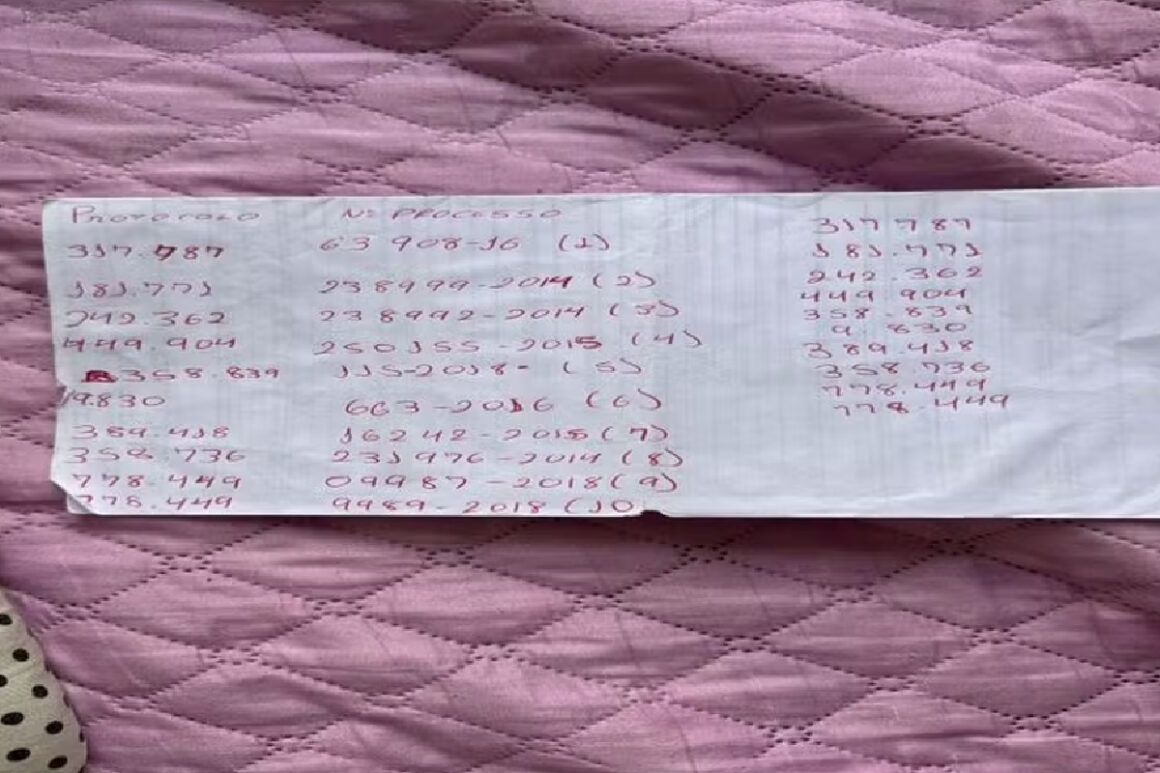 Protocolo Nº PROCESSO
317.787 63908-16 (1)
181.771 238999-2014 (2)
242.362 238992-2014 (3)
449.904 250155-2015 (4)
358.839 115-2018- (5)
19830 663-2016 (6)
389.418 16242-2015 (7)
358.736 231976-2014 (8)
778.449 09987-2018 (9)
778.449 9989-2018 (10
317787
181.771
242.362
449.904
358.839
9.830
389.418
358.736
778.449
778.449